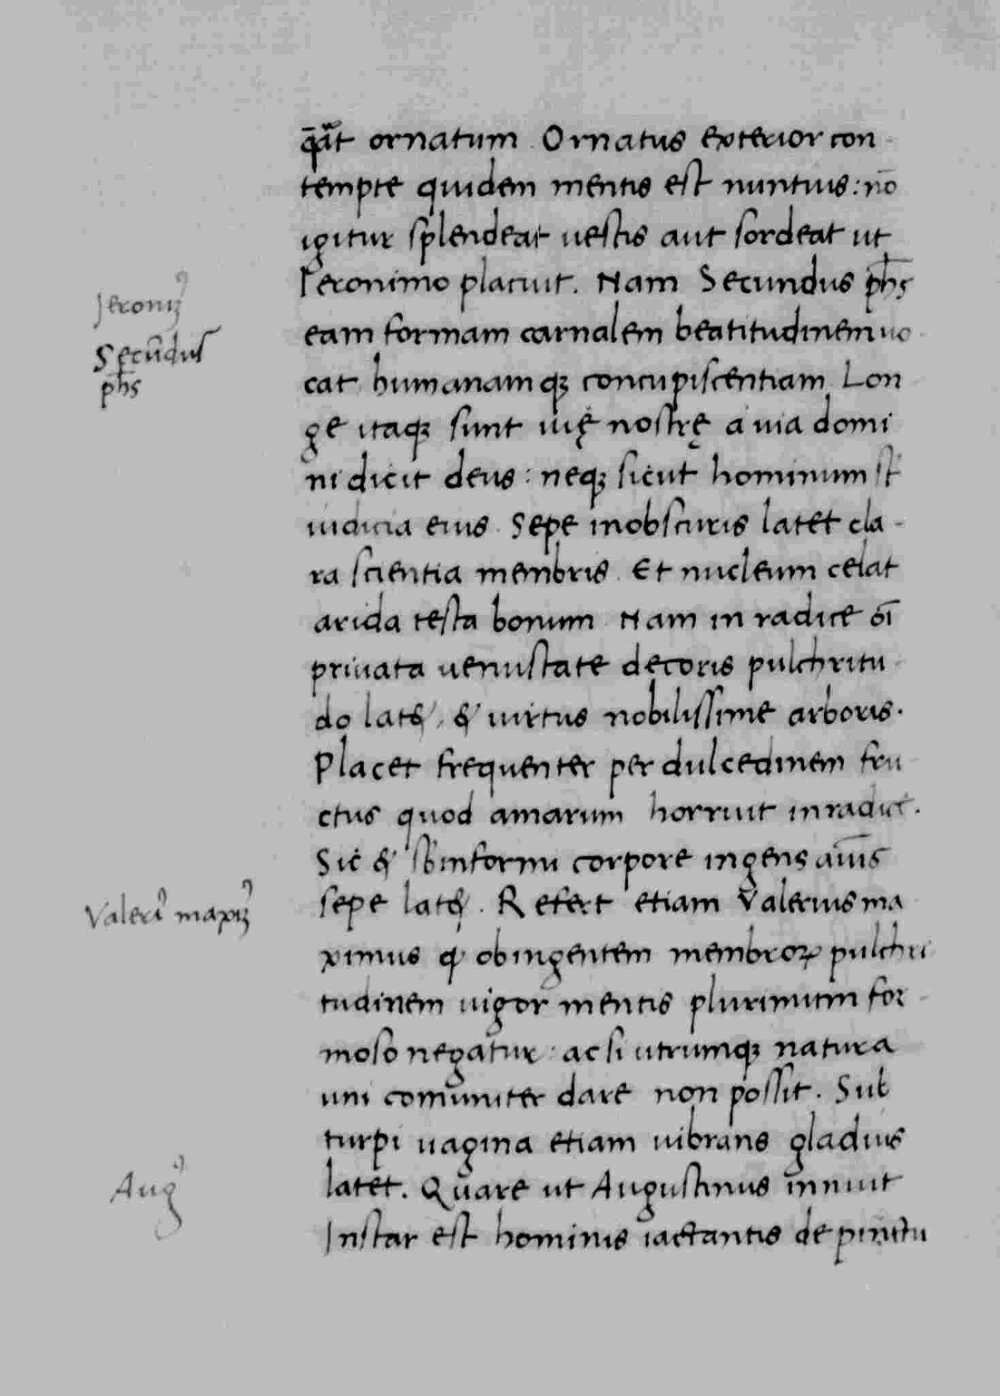 ornatum. Ornatus exterior con-
tempte quidem mentis est nuntius: nō
igitur splendeat uestis aut sordeat ut
Ieronimo placuit. Nam Secundus ph̄s
Ieronimꝰ
eam formam carnalem beatitudinem uo
Secūdus
cat humanamqꝫ concupiscentiam. Lon
ph̄s
ge itaqꝫ sunt uię nostrę a uia domi
ni dicit deus: neqꝫ sicut hominum st̄
iudicia eius. Sepe in obscuris latet cla-
ra scientia membris. Et nucleum celat
arida testa bonum. Nam in radice oī
priuata uenustate decoris pulchritu-
do latet, & uirtus nobilissime arboris.
Placet frequenter per dulcedinem fru
ctus quod amarum horruit in radice.
Sic & sb̄ informi corpore ingens aīus
sepe latet. Refert etiam Valerius ma
Valeriꝰ maximꝰ
ximus ꝙ ob ingentem membroꝝ pulchri
tudinem uigor mentis plurimum for-
moso negatur: ac si utrumqꝫ natura
uni comuniter dare non possit. Sub
turpi uagina etiam uibrans gladius
latet. Quare ut Augustinus innuit
Augꝰ
Instar est hominis iactantis de pinctu